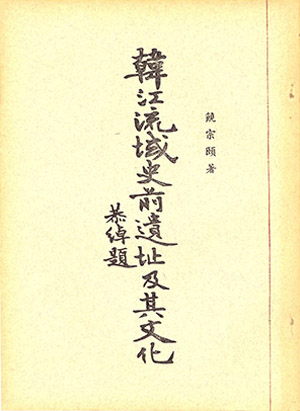 饒宗頤著
韓江流域史前遺址及其文化
恭綽題